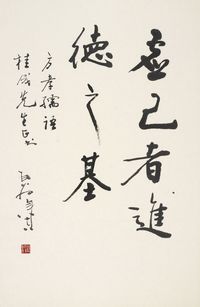 虛己者進
德之基
方孝孺語
桂成先生正